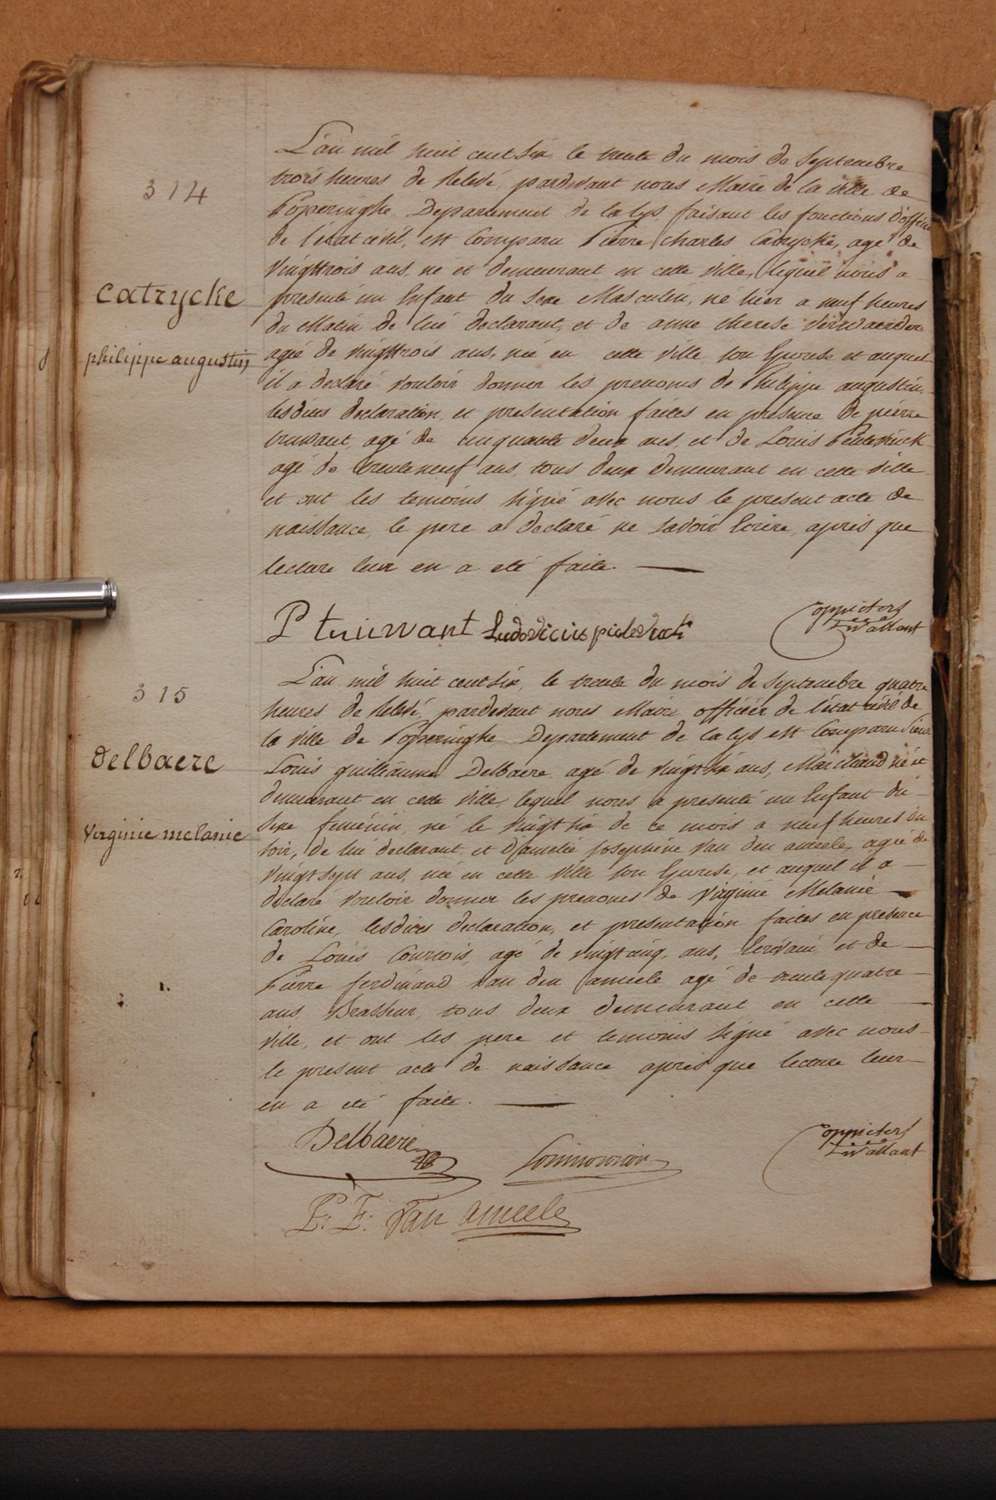 314
Catrycke
philippe augustin
L'an mil huit cent six le trente du mois de Septembre
trois heures de relevé, pardevant nous Maire de la ville de
Poperinghe Departement de la lys faisant les fonctions d'officier
de l'état civil, est Comparu Pierre Charles Catrycke, agé de
vingttrois ans, né et demeurant en cette ville, lequel nous a
presenté un Enfant du Sexe Masculin, né hier a neuf heures
du Matin de lui declarant, et de anne therese
agée de vingttrois ans, née en cette ville son Epouse et auquel
il a declaré vouloir donner les prenoms de Philippe augustin
lesdites declaration et presentation faites en presence de pierre
truwant, agé de cinquante deux ans, et de Louis
agé de trente neuf ans, tous deux demeurant en cette ville
et ont les temoins signé avec nous le present acte de
naissance, le pere a declaré ne savoir Ecrire, après que
lecture leur en a été faite.
P truwant Ludovicus
315
Delbaere
Virginie melanie
L'an mil huit cent six, le trente du mois de Septembre quatre
heures de relevé, pardevant nous Maire officier de l'état civil de
la ville de Poperinghe Departement de la lys est Comparu Sieur
Louis guillaume Delbaere agé de vingt six ans, Marchand né et
demeurant en cette ville, lequel nous a presenté un Enfant du
Sexe feminin, né le vingt six de ce mois a neuf heures du
soir, de lui declarant et D'amelie Josephine Van den ameele, agée de
vingt sept ans, née en cette ville son Epouse, et auquel il a
declaré vouloir donner les prenoms de Virginie Melanie
Caroline, lesdites declaration, et presentation faites en presence
de Louis Courtois, agé de vingt cinq ans, Ecrivain, et de
Pierre ferdinand Van den ameele agé de trente quatre
ans, Brasseur, tous deux demeurant en cette
ville, et ont les pere et temoins signé avec nous
le present acte de naissance après que lecture leur
en a été faite.
Delbaere
P: F: Van ameele